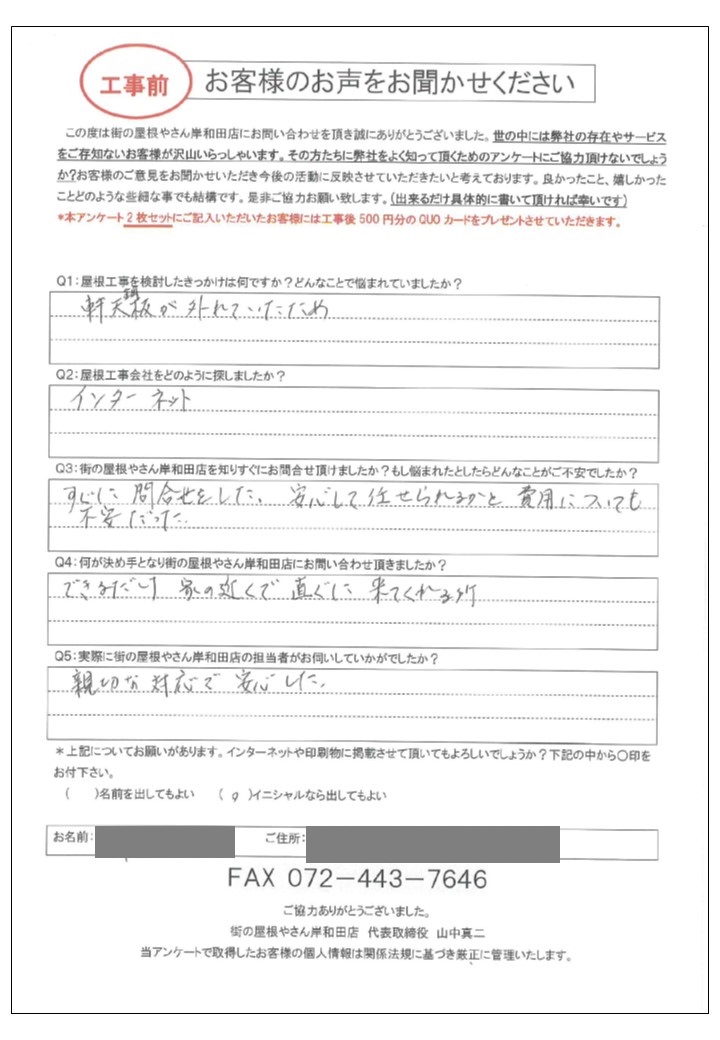 工事前
お客様のお声をお聞かせください
この度は街の屋根やさん岸和田店にお問い合わせを頂き誠にありがとうございました。世の中には弊社の存在やサービス
をご存知ないお客様が沢山いらっしゃいます。その方たちに弊社をよく知って頂くためのアンケートにご協力頂けないでしょう
か?お客様のご意見をお聞かせいただき今後の活動に反映させていただきたいと考えております。良かったこと、嬉しかった
ことどのような些細な事でも結構です。是非ご協力お願い致します。(出来るだけ具体的に書いて頂ければ幸いです)
*本アンケート2枚セットにご記入いただいたお客様には工事後500円分のQUOカードをプレゼントさせていただきます。
Q1:屋根工事を検討したきっかけは何ですか?どんなことで悩まれていましたか?
軒天板が外れていたため
Q2:屋根工事会社をどのように探しましたか?
インターネット
Q3:街の屋根やさん岸和田店を知りすぐにお問合せ頂けましたか?もし悩まれたとしたらどんなことがご不安でしたか?
すぐに問合せをした、安心して任せられるかと費用についても
不安だった。
Q4:何が決め手となり街の屋根やさん岸和田店にお問い合わせ頂きましたか?
できるだけ家の近くで直ぐに来てくれる所
Q5:実際に街の屋根やさん岸和田店の担当者がお伺いしていかがでしたか?
親切な対応で安心した。
*上記についてお願いがあります。インターネットや印刷物に掲載させて頂いてもよろしいでしょうか?下記の中から〇印を
お付下さい。
( )名前を出してもよい ( o )イニシャルなら出してもよい
お名前: ご住所:
FAX 072-443-7646
ご協力ありがとうございました。
街の屋根やさん岸和田店 代表取締役 山中真二
当アンケートで取得したお客様の個人情報は関係法規に基づき厳正に管理いたします。